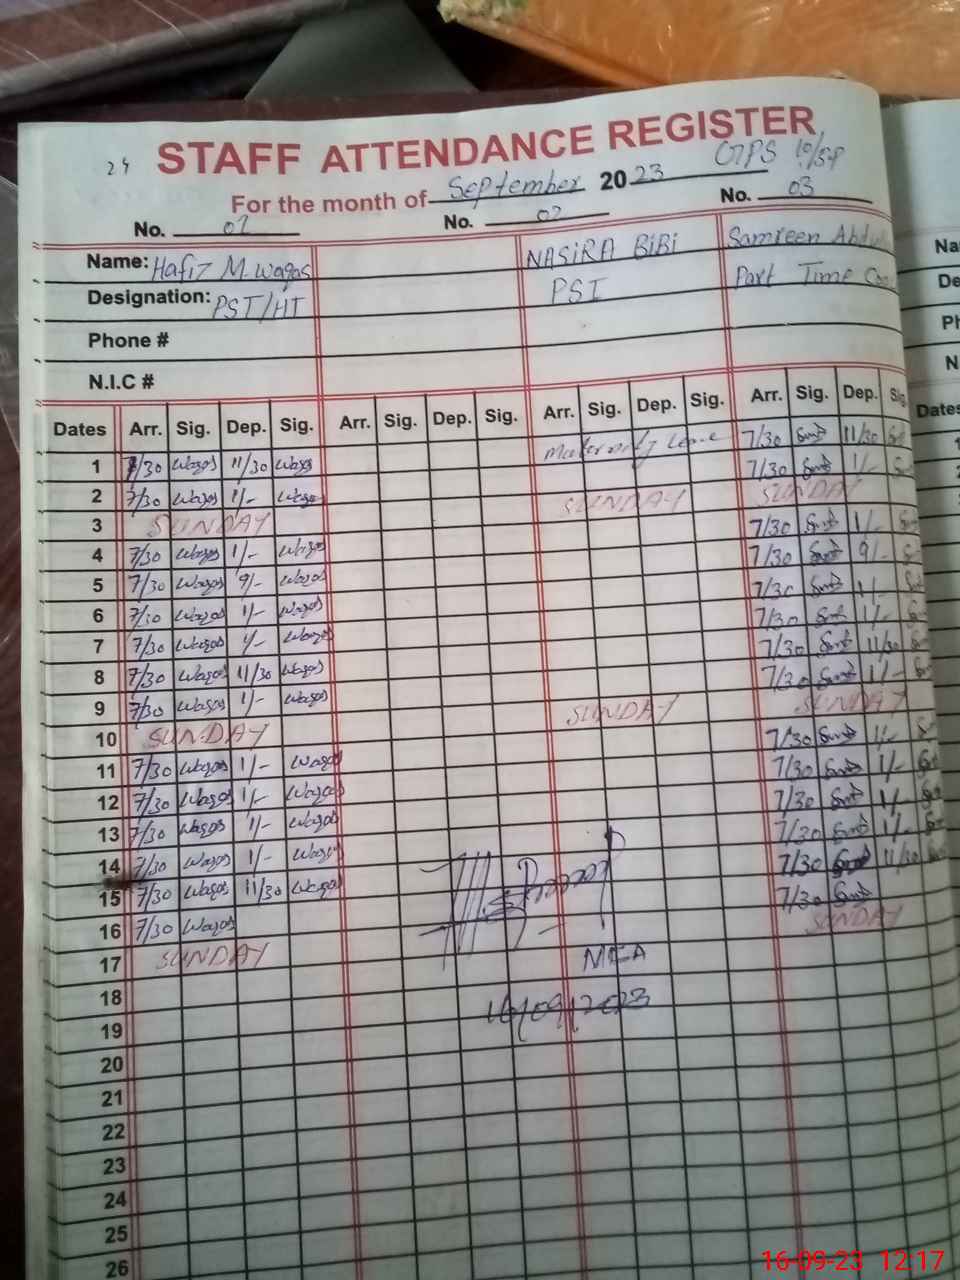 24 STAFF ATTENDANCE REGISTER
For the month of September 2023 GPS
No. 01 No. 02 No. 03
Name: Hafiz M. Waqas NASIRA BiBi Samreen Na
Designation: PST/HT PST Part Time De
Phone # Ph
N.I.C # N
Dates Arr. Sig. Dep. Sig. Arr. Sig. Dep. Sig. Arr. Sig. Dep. Sig. Arr. Sig. Dep. Sig. Dates
1 7/30 Waqas 11/30 Waqas Maternity Leave 7/30 11/30
2 7/30 Waqas 1/- Waqas 7/30 1/-
3 SUNDAY SUNDAY SUNDAY
4 7/30 Waqas 1/- Waqas 7/30 1/-
5 7/30 Waqas 9/- Waqas 7/30 9/-
6 7/30 Waqas 1/- Waqas 7/30 1/-
7 7/30 Waqas 1/- Waqas 7/30 1/-
8 7/30 Waqas 11/30 Waqas 7/30 11/30
9 7/30 Waqas 1/- Waqas 7/30 1/-
10 SUNDAY SUNDAY SUNDAY
11 7/30 Waqas 1/- Waqas 7/30 1/-
12 7/30 Waqas 1/- Waqas 7/30 1/-
13 7/30 Waqas 1/- Waqas 7/30 1/-
14 7/30 Waqas 1/- Waqas 7/30 1/-
15 7/30 Waqas 11/30 Waqas 7/30 11/30
16 7/30 Waqas 7/30
17 SUNDAY MEA SUNDAY
18 16/09/2023
19
20
21
22
23
24
25
26
16-09-23 12:17